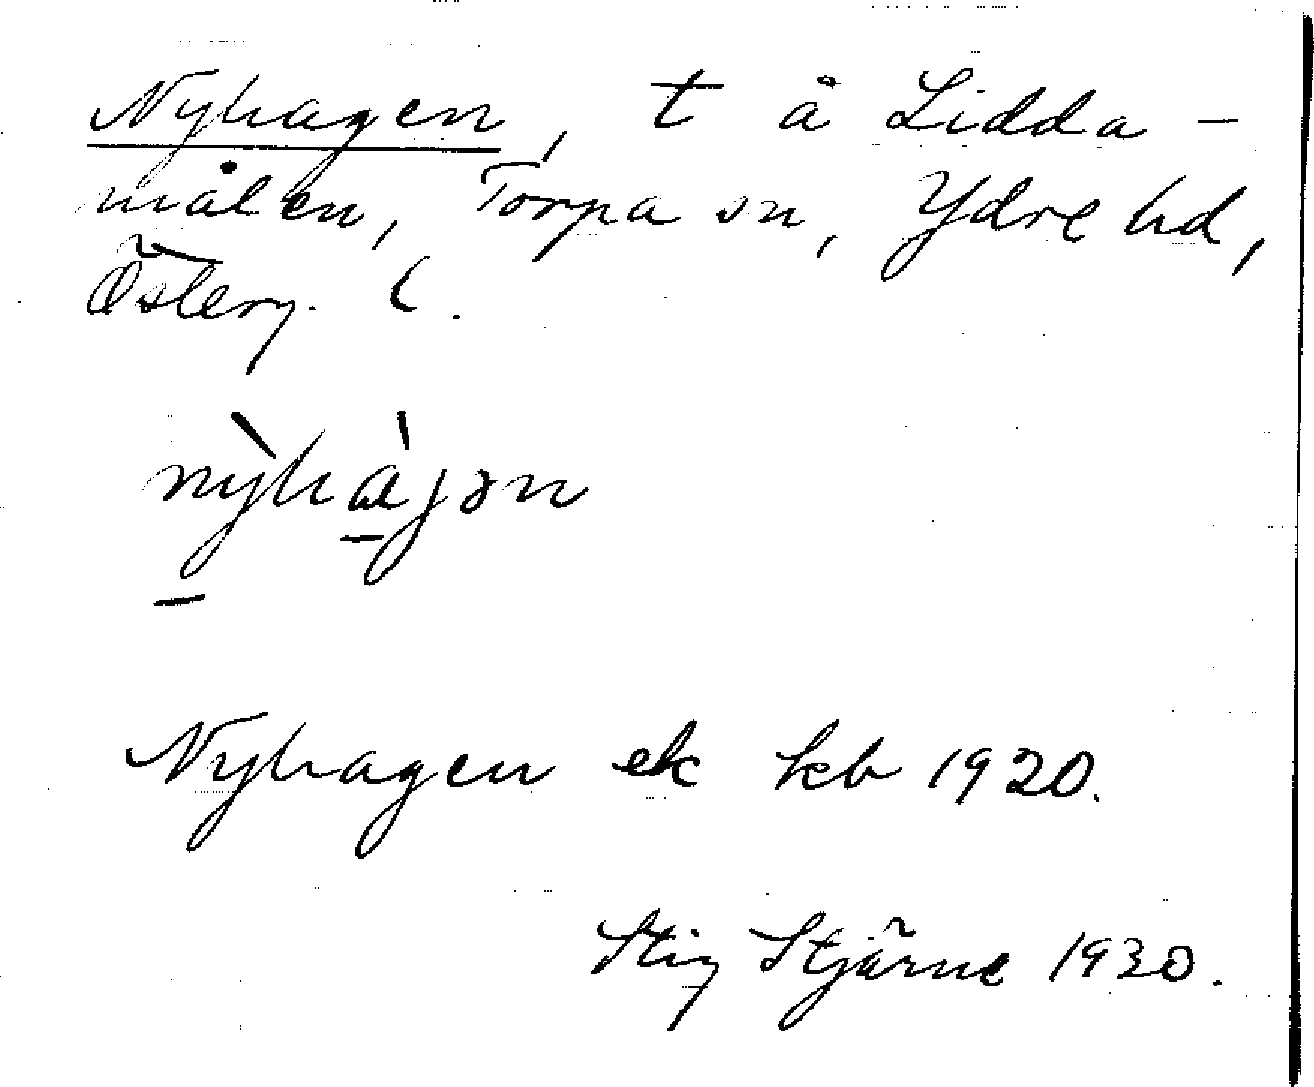 Nyhagen, t å Lidda-
målen, Torpa sn, Ydre hd,
Österg. l.
nỳhàjən
Nyhagen ek kb 1920.
Stig Stjärne 1930.